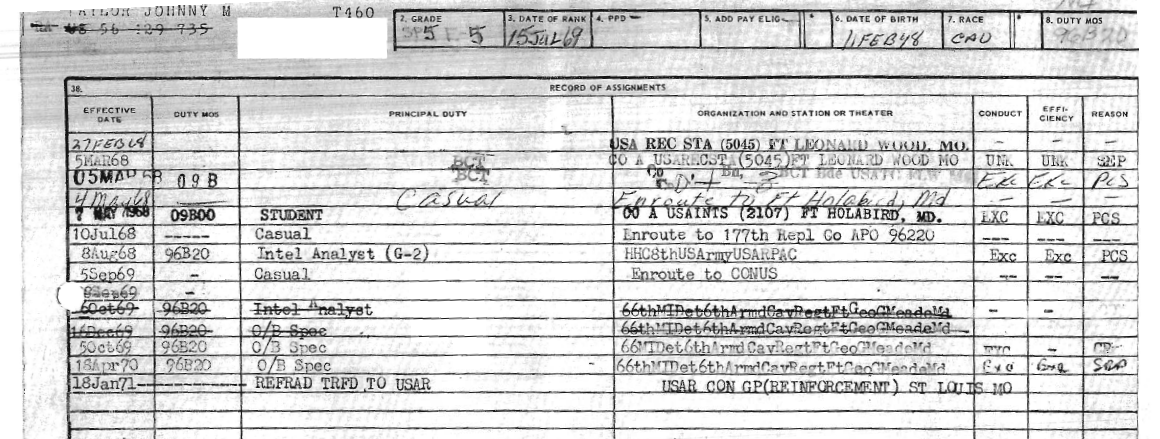 TAYLOR JOHNNY M T460
US 56 129 735
2. GRADE 3. DATE OF RANK 4. PPD 5. ADD PAY ELIG 6. DATE OF BIRTH 7. RACE 8. DUTY MOS
SP5 E-5 15JUL69 11FEB48 CAU 96B20
38. RECORD OF ASSIGNMENTS
EFFECTIVE DATE DUTY MOS PRINCIPAL DUTY ORGANIZATION AND STATION OR THEATER CONDUCT EFFI-CIENCY REASON
27FEB68 USA REC STA (5045) FT LEONARD WOOD. MO. - - -
5MAR68 BCT CO A USARECSTA(5045)FT LEONARD WOOD MO UNK UNK SEP
05MAR68 09B BCT Co Bn, BCT Bde USATC FLW Exc Exc PCS
4May68 Casual Enroute to Ft Holabird, Md - - -
7 MAY 1968 09B00 STUDENT CO A USAINTS (2107) FT HOLABIRD, MD. EXC EXC PCS
10Jul68 ----- Casual Enroute to 177th Repl Co APO 96220 --- --- ---
8Aug68 96B20 Intel Analyst (G-2) HHC8thUSArmyUSARPAC Exc Exc PCS
5Sep69 - Casual Enroute to CONUS -- -- --
8Sep69 -
6Oct69 96B20 Intel Analyst 66thMIDet6thArmdCavRegtFtGeoGMeadeMd - -
16Dec69 96B20 O/B Spec 66thMIDet6thArmdCavRegtFtGeoGMeadeMd
5Oct69 96B20 O/B Spec 66MIDet6thArmdCavRegtFtGeoGMeadeMd EXC -
18Apr70 96B20 O/B Spec 66thMIDet6thArmdCavRegtFtGeoGMeadeMd Exc Exc SEP
18Jan71 REFRAD TRFD TO USAR USAR CON GP(REINFORCEMENT) ST LOUIS MO